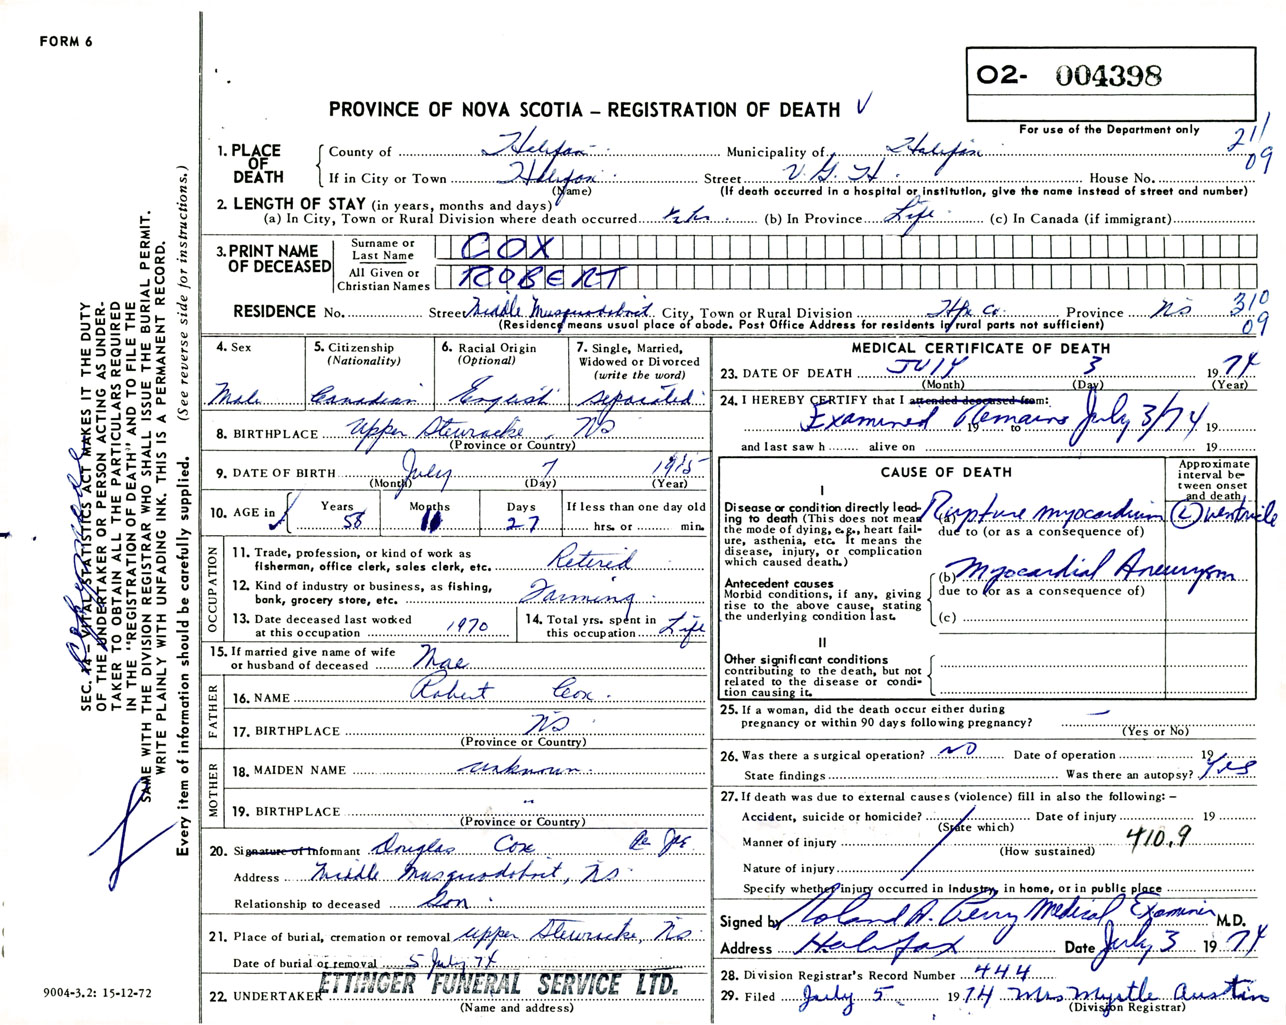 FORM 6
O2- 004398
PROVINCE OF NOVA SCOTIA – REGISTRATION OF DEATH V
For use of the Department only
211
09
1. PLACE OF DEATH
County of Halifax Municipality of Halifax
If in City or Town Halifax Street V. G. H. House No.
(Name) (If death occurred in a hospital or institution, give the name instead of street and number)
2. LENGTH OF STAY (in years, months and days)
(a) In City, Town or Rural Division where death occurred (b) In Province Life (c) In Canada (if immigrant)
3. PRINT NAME OF DECEASED
Surname or Last Name COX
All Given or Christian Names ROBERT
RESIDENCE No. Street Middle Musquodoboit City, Town or Rural Division Hfx Co. Province NS
310
09
(Residency means usual place of abode. Post Office Address for residents in rural parts not sufficient)
4. Sex
Male
5. Citizenship
(Nationality)
Canadian
6. Racial Origin
(Optional)
English
7. Single, Married,
Widowed or Divorced
(write the word)
separated
8. BIRTHPLACE Upper Stewiacke, NS
(Province or Country)
9. DATE OF BIRTH July 7 1915
(Month) (Day) (Year)
10. AGE in
Years 58
Months 11
Days 27
If less than one day old
hrs. or min.
OCCUPATION
11. Trade, profession, or kind of work as
fisherman, office clerk, sales clerk, etc. Retired
12. Kind of industry or business, as fishing,
bank, grocery store, etc. Farming
13. Date deceased last worked
at this occupation 1970
14. Total yrs. spent in
this occupation Life
15. If married give name of wife
or husband of deceased Mae
FATHER
16. NAME Robert Cox
17. BIRTHPLACE NS
(Province or Country)
MOTHER
18. MAIDEN NAME unknown
19. BIRTHPLACE "
(Province or Country)
20. Signature of Informant Douglas Cox
Address Middle Musquodoboit, NS
Relationship to deceased Son
21. Place of burial, cremation or removal Upper Stewiacke, NS
Date of burial or removal 5 July 74
22. UNDERTAKER ETTINGER FUNERAL SERVICE LTD.
(Name and address)
MEDICAL CERTIFICATE OF DEATH
23. DATE OF DEATH JULY 3 1974
(Month) (Day) (Year)
24. I HEREBY CERTIFY that I attended deceased from:
Examined Remains July 3/74 19
19 to
and last saw h alive on 19
CAUSE OF DEATH
Approximate interval between onset and death
I
Disease or condition directly leading to death (This does not mean the mode of dying, e.g., heart failure, asthenia, etc. It means the disease, injury, or complication which caused death.)
(a) Rupture myocardium (L) ventricle
due to (or as a consequence of)
Antecedent causes
Morbid conditions, if any, giving rise to the above cause, stating the underlying condition last.
(b) Myocardial Aneurysm
due to (or as a consequence of)
(c)
II
Other significant conditions
contributing to the death, but not related to the disease or condition causing it.
25. If a woman, did the death occur either during
pregnancy or within 90 days following pregnancy? –
(Yes or No)
26. Was there a surgical operation? NO Date of operation 19
State findings Was there an autopsy? Yes
27. If death was due to external causes (violence) fill in also the following: –
Accident, suicide or homicide? Date of injury 19
(State which)
Manner of injury 410.9
(How sustained)
Nature of injury
Specify whether injury occurred in industry, in home, or in public place
Signed by Roland A. Perry Medical Examiner M.D.
Address Halifax Date July 3 1974
28. Division Registrar's Record Number 444
29. Filed July 5 1974 Mrs Myrtle Austin
(Division Registrar)
SEC. 14 – VITAL STATISTICS ACT MAKES IT THE DUTY
OF THE UNDERTAKER OR PERSON ACTING AS UNDER-
TAKER TO OBTAIN ALL THE PARTICULARS REQUIRED
IN THE "REGISTRATION OF DEATH" AND TO FILE THE
SAME WITH THE DIVISION REGISTRAR WHO SHALL ISSUE THE BURIAL PERMIT.
WRITE PLAINLY WITH UNFADING INK. THIS IS A PERMANENT RECORD.
Every item of information should be carefully supplied. (See reverse side for instructions.)
9004-3.2: 15-12-72